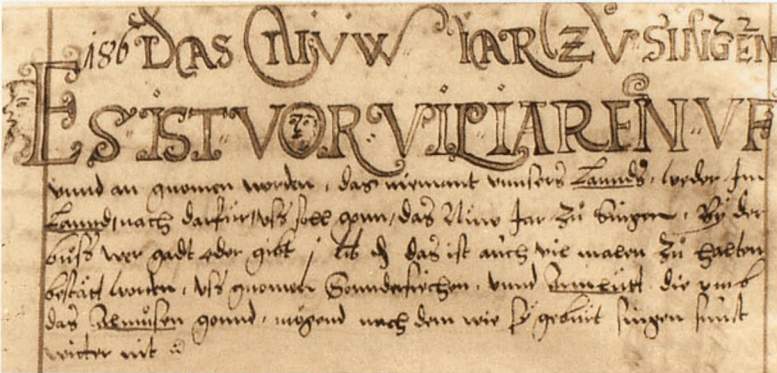 186 DAS NIVW IAR ZV SINGEN
ES IST VOR VIL IAREN VF
vnnd an gnomen worden, das niemant vnnsers Lannds, weder Im
Lannd, nach darfür, vss soll gonn, das Nüw Jar zů singen, By der
bůss wer gadt oder gibt j lib d das ist auch vil malen zů halten
bestätt worden, vss gnomen Sonndersiechen, vnnd Armlütt die vmb
das Almůsen gonnd, mögend nach dem wie sy gebürt singen sunst
witter nit